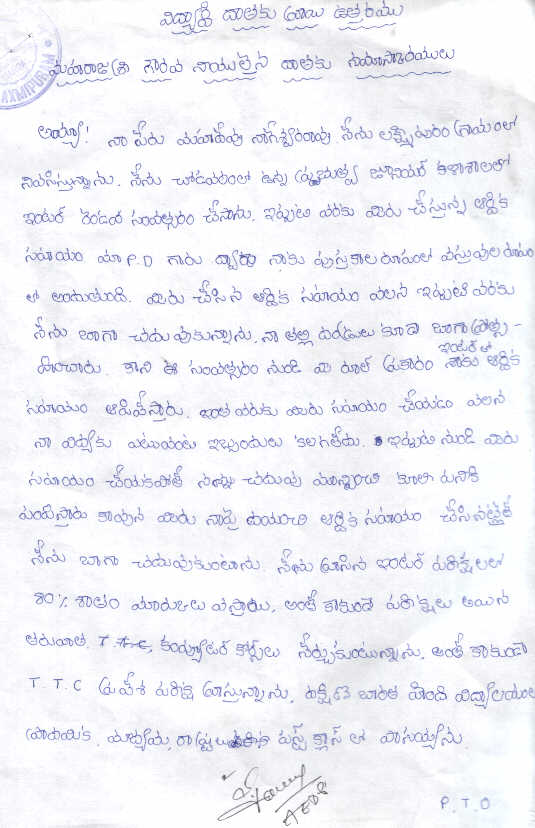 విద్యార్థి దాతకు వ్రాయు ఉత్తరము
మహారాజశ్రీ గౌరవ నాయులైన దాతకు నమస్కారములు
అయ్యా! నా పేరు నాగేశ్వరరావు నేను లక్ష్మీపురం గ్రామంలో
నివసిస్తున్నాను. నేను చోడవరంలో ఉన్న ప్రభుత్వ జూనియర్ కళాశాలలో
ఇంటర్ రెండవ సంవత్సరం చేసాను. ఇప్పటి వరకు మీరు చేస్తున్న ఆర్థిక
సహాయం మా P.D గారు ద్వారా నాకు పుస్తకాల రూపంలో వస్తువుల రూపం
లో అందుతుంది. మీరు చేసిన ఆర్థిక సహాయం వలన ఇప్పటి వరకు
నేను బాగా చదువుకున్నాను. నా తల్లి దండ్రులు కూడా బాగా ప్రోత్స-
హించారు. కాని ఈ సంవత్సరం నుండి మీ రూల్ ప్రకారం ఇంటర్ లో నాకు ఆర్థిక
సహాయం ఆపివేస్తారు. ఇంత వరకు మీరు సహాయం చేయడం వలన
నా విద్యకు ఎటువంటి ఇబ్బందులు కలగలేదు. ఇప్పుడు నుండి మీరు
సహాయం చేయకపోతే నన్ను చదువు మాన్పించి కూలి పనికి
పంపిస్తారు కావున మీరు నాపై దయుంచి ఆర్థిక సహాయం చేసినట్లైతే
నేను బాగా చదువుకుంటాను. నేను వ్రాసిన ఇంటర్ పరీక్షలలో
80% శాతం మార్కులు వస్తాయి. అంతే కాకుండా పరీక్షలు అయిన
తరువాత. కంప్యూటర్ కోర్సులు నేర్చుకుంటున్నాను. అంతే కాకుండా
T.T.C ప్రవేశ పరీక్ష వ్రాస్తున్నాను. దక్షిణ భారత హిందీ విద్యాలయం
ప్రాథమిక, మధ్యమ, రాష్ట్ర ఫస్ట్ క్లాస్ లో పాసయ్యాను.
P.T.O